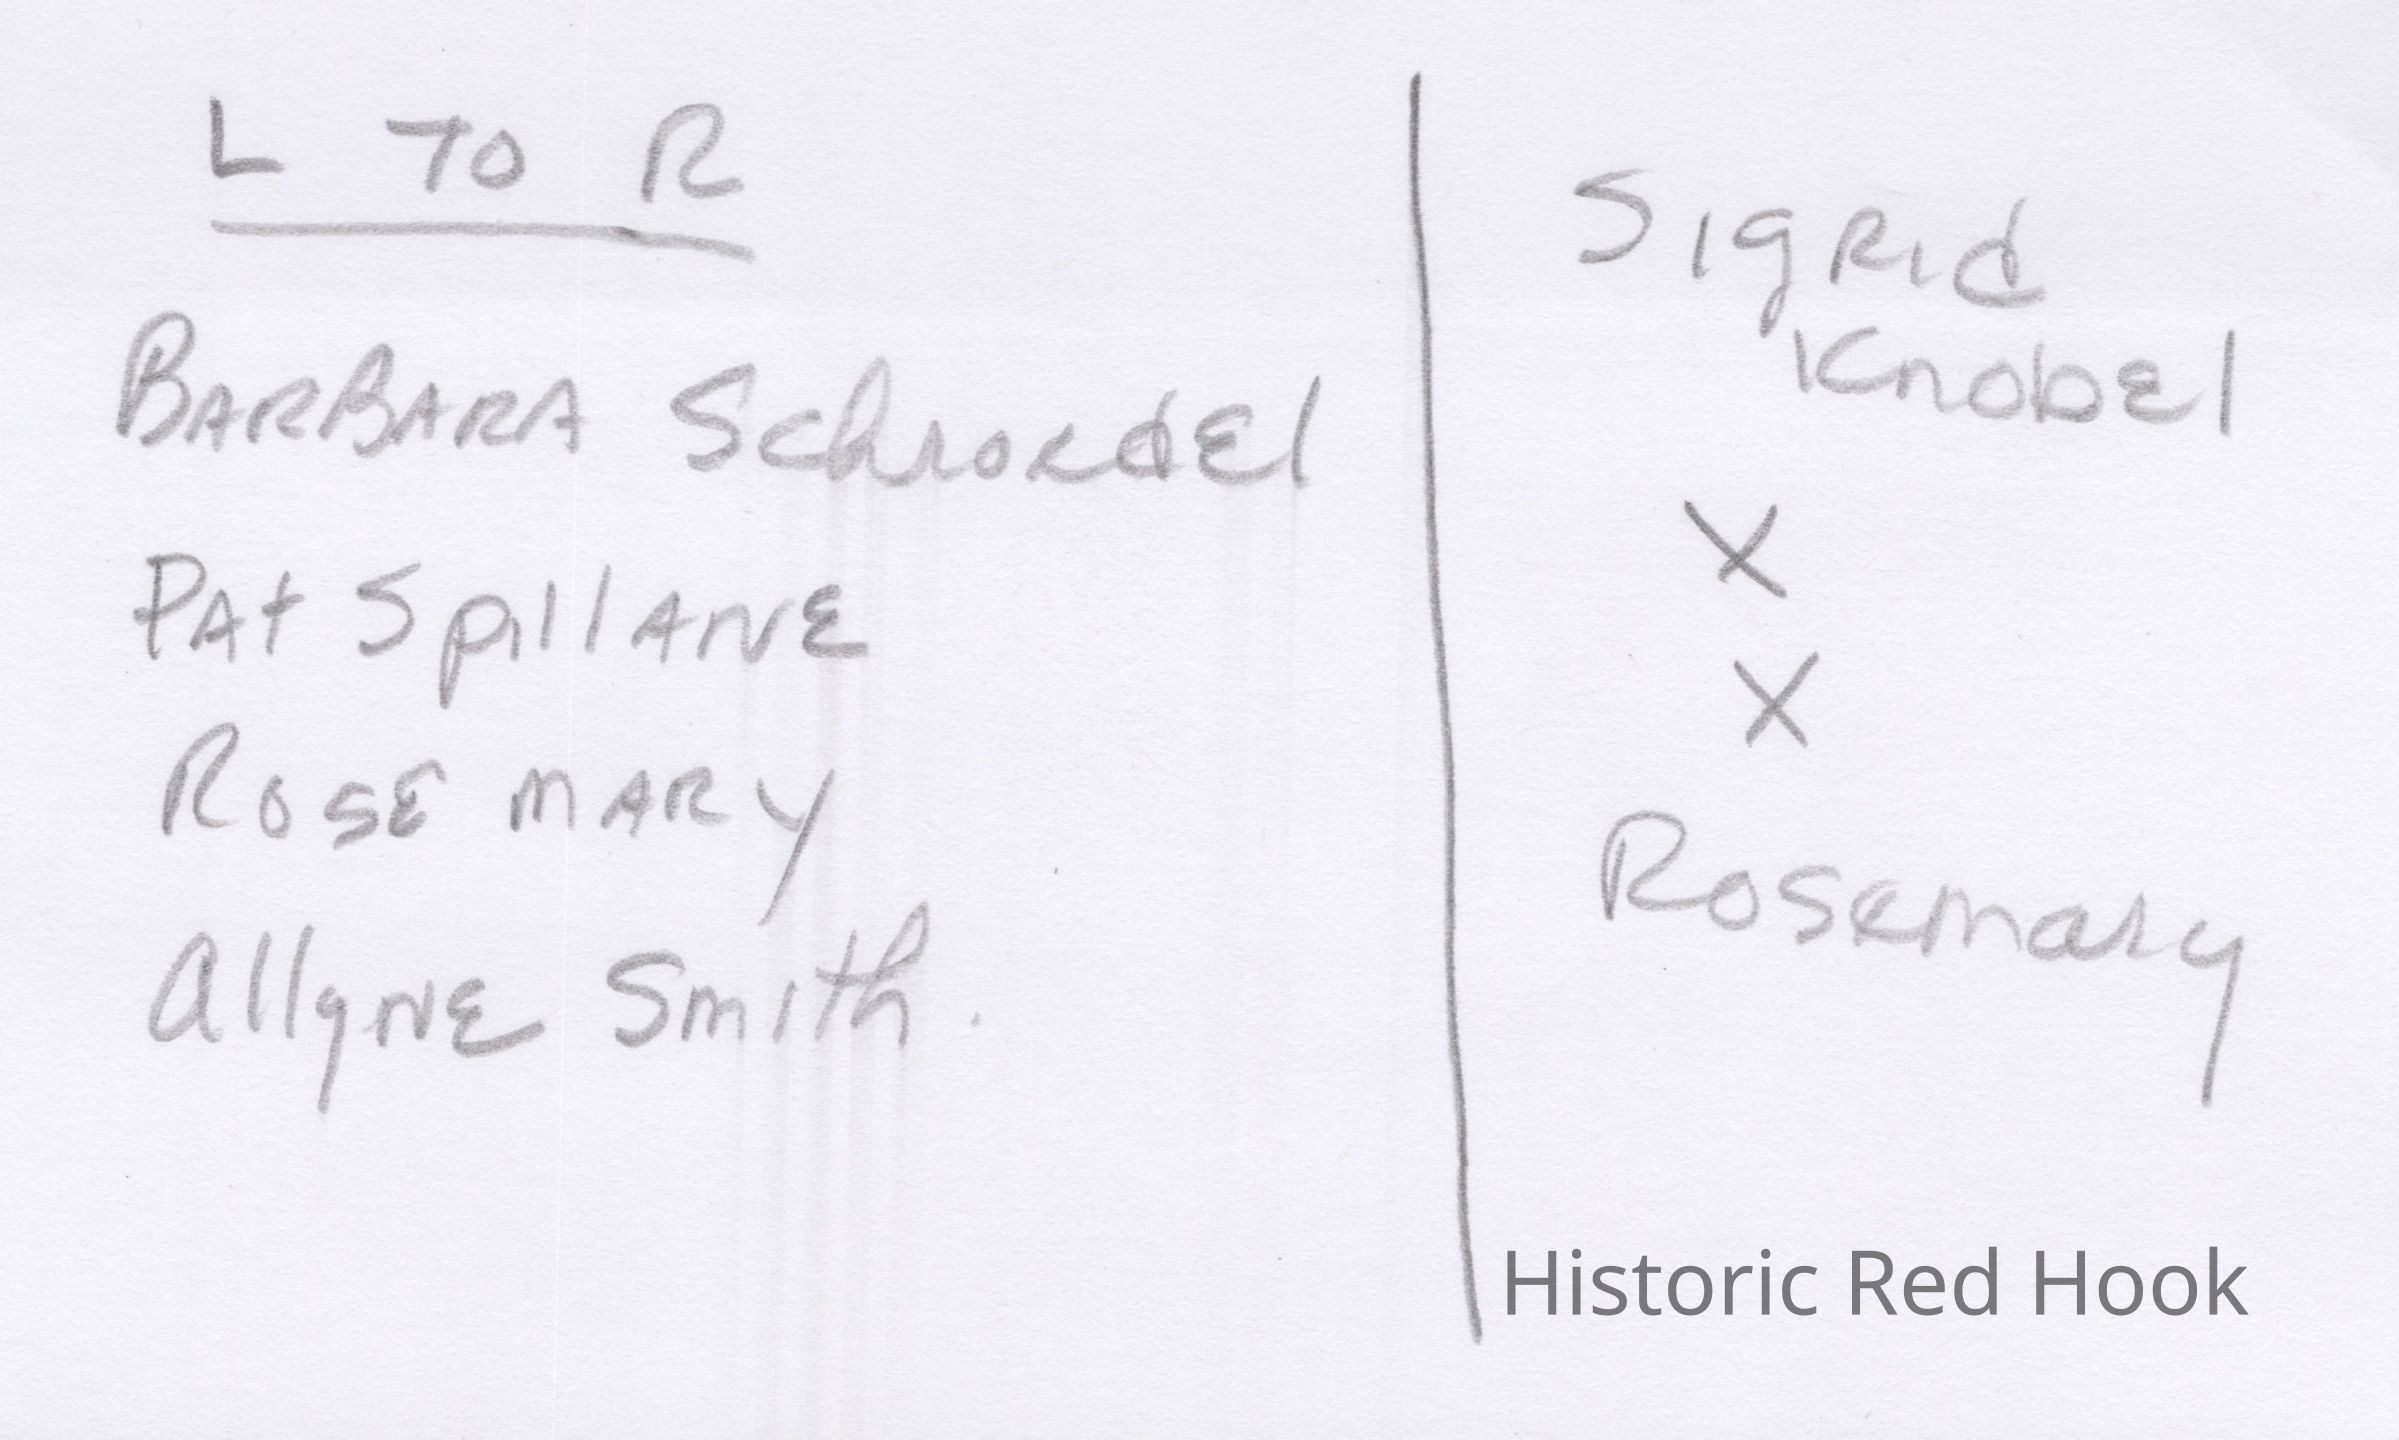 L TO R
BARBARA Schroedel
PAt SpillANE
ROSE MARY
AllyNE Smith.
SigRid
KnobEl
X
X
Rosemary
Historic Red Hook